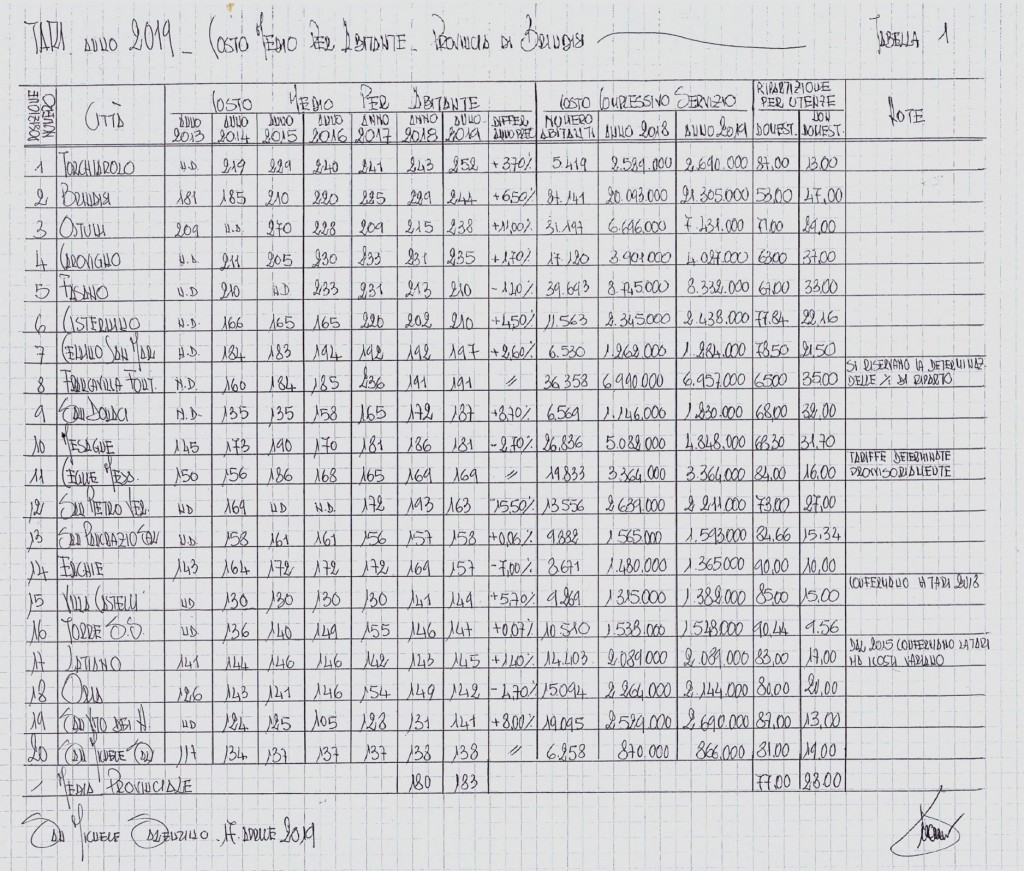 TARI ANNO 2019 - COSTO MEDIO PER ABITANTE - PROVINCIA DI BRINDISI TABELLA 1
POSIZIONE NUMERO CITTÀ COSTO MEDIO PER ABITANTE COSTO COMPLESSIVO SERVIZIO RIPARTIZIONE PER UTENTE NOTE
ANNO 2013 ANNO 2014 ANNO 2015 ANNO 2016 ANNO 2017 ANNO 2018 ANNO 2019 DIFFER. NUMERO ABITANTI ANNO 2018 ANNO 2019 DOMEST. NON DOMEST.
1 TORCHIAROLO N.D. 219 229 240 241 243 252 +3,70% 5.419 2.589.000 2.690.000 87,00 13,00
2 BRINDISI 181 185 210 220 225 229 244 +6,50% 87.141 20.093.000 21.305.000 53,00 47,00
3 OSTUNI 209 N.D. 270 228 209 215 238 +11,00% 31.197 6.696.000 7.431.000 71,00 29,00
4 CAROVIGNO N.D. 211 205 230 233 231 235 +1,70% 17.120 3.901.000 4.027.000 63,00 37,00
5 FASANO N.D. 210 N.D 233 231 213 210 -1,10% 39.693 8.745.000 8.332.000 67,00 33,00
6 CISTERNINO N.D. 166 165 165 220 202 210 +4,50% 11.563 2.345.000 2.438.000 77,84 22,16
7 CELLINO SAN MAR. N.D. 184 183 194 192 192 197 +2,60% 6.530 1.262.000 1.284.000 78,50 21,50
8 FRANCAVILLA FONT. N.D. 160 184 185 236 191 191 // 36.358 6.990.000 6.957.000 65,00 35,00 SI RISERVANO LA DETERMINAZ. DELLE % DI RIPARTO
9 SAN DONACI N.D. 135 135 158 165 172 187 +8,70% 6.569 1.146.000 1.230.000 68,00 32,00
10 MESAGNE 145 173 190 170 181 186 181 -2,70% 26.836 5.082.000 4.848.000 68,30 31,70
11 CEGLIE MESS. 150 156 186 168 165 169 169 // 19.833 3.364.000 3.364.000 84,00 16,00 TARIFFE DETERMINATE PROVVISORIAMENTE
12 SAN PIETRO VER. ND 169 ND N.D. 172 193 163 -15,50% 13.556 2.631.000 2.211.000 73,00 27,00
13 SAN PANCRAZIO SAL. N.D. 158 161 161 156 157 158 +0,06% 9.882 1.565.000 1.593.000 84,66 15,34
14 ERCHIE 143 164 172 172 172 169 157 -7,00% 8.671 1.480.000 1.365.000 90,00 10,00
15 VILLA CASTELLI ND 130 130 130 130 141 149 +5,70% 9.269 1.315.000 1.382.000 85,00 15,00 CONFERMANO LA TARI 2018
16 TORRE S.S. ND. 136 140 149 155 146 147 +0,07% 10.510 1.538.000 1.548.000 90,44 9,56
17 LATIANO 141 144 146 146 142 143 145 +1,40% 14.403 2.089.000 2.089.000 83,00 17,00 DAL 2015 CONFERMANO LA TARI MA I COSTI VARIANO
18 ORIA 126 143 141 146 154 149 142 -4,70% 15.094 2.264.000 2.144.000 80,00 20,00
19 SAN VITO DEI N. ND 124 125 105 128 131 141 +8,00% 19.095 2.529.000 2.690.000 87,00 13,00
20 SAN MICHELE SAL. 117 134 137 137 137 138 138 // 6.258 870.000 866.000 81,00 19,00
MEDIA PROVINCIALE 180 183 77,00 23,00
SAN MICHELE SALENTINO, 17 APRILE 2019